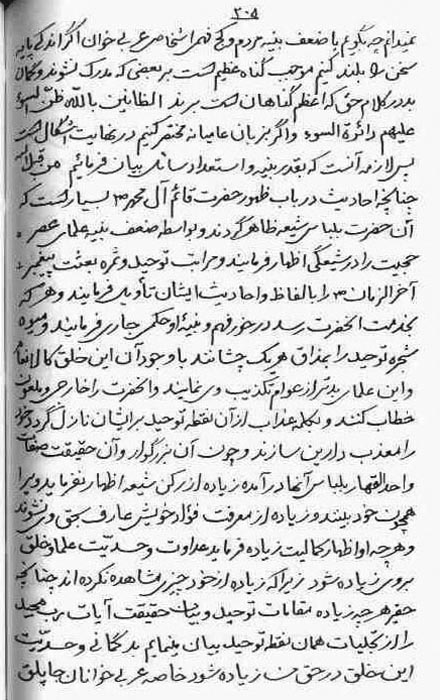 ۳۰۵
نمیدانم چه بگویم با ضعف بنیه مردم و کج فهمی اشخاص عربی خوان اگر اندکی پایه
سخن را بلند کنیم موجب گناه عظیم است بر بعضی که مدرک نشوند و گمان
بد در کلام حق که اعظم گناهان است برند الظانین بالله ظن السوء
علیهم دائرة السوء و اگر بزبان عامیانه مختصر کنیم در نهایت اشکال است
پس لازمه آنست که بقدر بنیه و استعداد سائل بیان فرمائیم من قبل
چنانچه احادیث در باب ظهور حضرت قائم آل محمد ص بسیار است که
آن حضرت بلباس شیعه ظاهر گردند و بواسطه ضعف بنیه علمای عصر
حجیت را در شیعگی اظهار فرمایند و مراتب توحید و ثمره بعثت پیغمبر
آخر الزمان ص را بالفاظ و احادیث ایشان تأویل فرمایند و هر که
بخدمت آنحضرت رسد در خور فهم و بنیهٔ او حکمی جاری فرمایند و میوه
شجره توحید را بمذاق هر یک چشانند با وجود آن این خلق کالانعام
و این علمای بدتر از عوام تکذیب وی نمایند و آنحضرت را خارجی و ملعون
خطاب کنند و کلمه عذاب از آن نقطه توحید بر ایشان نازل گردد و خود
را معذب دارین سازند و چون آن بزرگوار و آن حقیقت صفات
واحد القهار بلباس آنها در آمده زیاده از رکن شیعه اظهار نفرماید ویرا
همچون خود بینند و زیاده از معرفت فؤاد خویش عارف بحق وی نشوند
و هر چه او اظهار کمالیت زیاده فرماید عداوت و ضدیت علما و خلق
بر وی زیاده شود زیرا که زیاده از خود چیزی مشاهده نکرده اند چنانچه
حقیر هر چه زیاده مقامات توحید و بیان حقیقت آیات رب مجید
را از تجلیات همان نقطه توحید بیان مینمایم بد گمانی و ضدیت
این خلق در حق من زیاده شود خاصه عربی خوانان جاپلق